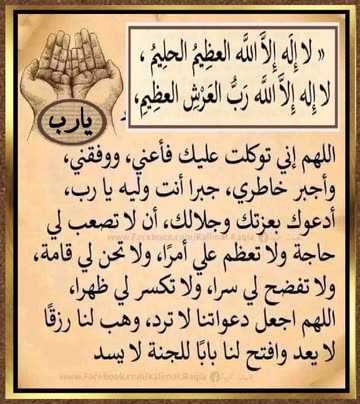 « لا إِله إِلاَّ اللَّه العظِيمُ الحلِيمُ ،
لا إِله إِلاَّ اللَّه رَبُّ العَرْشِ العظِيمِ،
يارب
اللهم إني توكلت عليك فأعني، ووفقني،
وأجبر خاطري، جبرا أنت وليه يا رب،
أدعوك بعزتك وجلالك، أن لا تصعب لي
حاجة ولا تعظم علي أمرًا، ولا تحن لي قامة،
ولا تفضح لي سرا، ولا تكسر لي ظهرا،
اللهم اجعل دعواتنا لا ترد، وهب لنا رزقًا
لا يعد وافتح لنا بابًا للجنة لا يسد
www.Facebook.com/Kalimat.Raqia